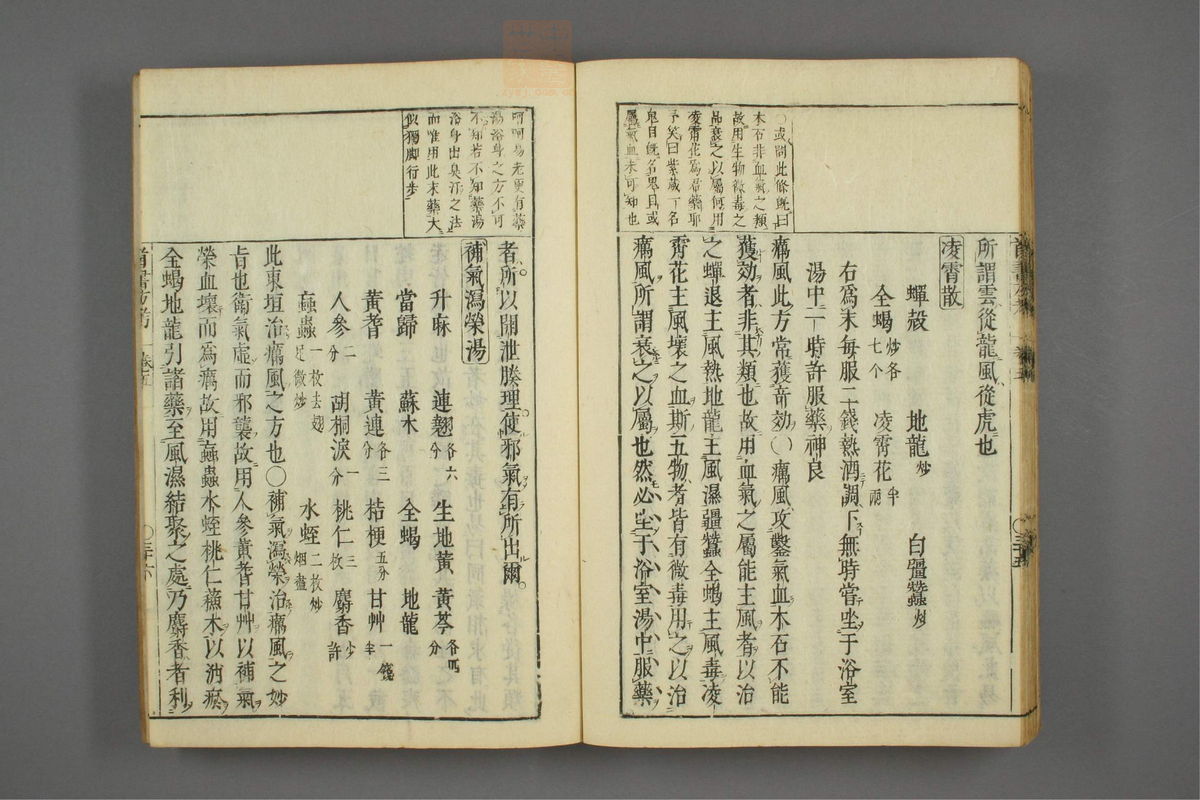 所謂雲從龍風從虎也
凌霄散
蟬殼 地龍炒 白疆蠶炒
全蝎炒各七个 凌霄花半兩
右爲末每服二錢熱酒調下無時當坐于浴室
湯中一時許服藥神良
癘風此方常獲奇効○癘風攻鑿氣血木石不能
獲効者非其類也故用血氣之屬能主風者以治
之蟬退主風熱地龍主風濕疆蠶全蝎主風毒凌
霄花主風壞之血斯五物者皆有微毒用之以治
癘風所謂衰之以屬也然必坐于浴室湯中服藥
○或問此條旣曰
木石非血氣之類
故用生物微毒之
品衰之以屬何用
凌霄花爲君藥耶
予笑曰紫葳一名
鬼目旣名鬼目或
屬氣血未可知也
者所以開泄腠理使邪氣有所出爾
補氣瀉榮湯
升麻 連翹各六分 生地黃 黃芩各四分
當歸 蘇木 全蝎 地龍
黃耆 黃連各三分 桔梗五分 甘艸一錢半
人參二分 胡桐淚一分 桃仁三枚 麝香少許
蝱蟲一枚去翅足微炒 水蛭二枚炒烟盡
此東垣治癘風之方也○補氣瀉榮治癘風之妙
㫖也衛氣虛而邪襲故用人參黃耆甘艸以補氣
榮血壞而爲癘故用蝱蟲水蛭桃仁蘇木以消瘀
全蝎地龍引諸藥至風濕結聚之處乃麝香者利
呵呵昜老更有藥
湯浴身之方不可
不知若不知藥湯
浴身出臭汗之法
而唯用此末藥大
似獨脚行步